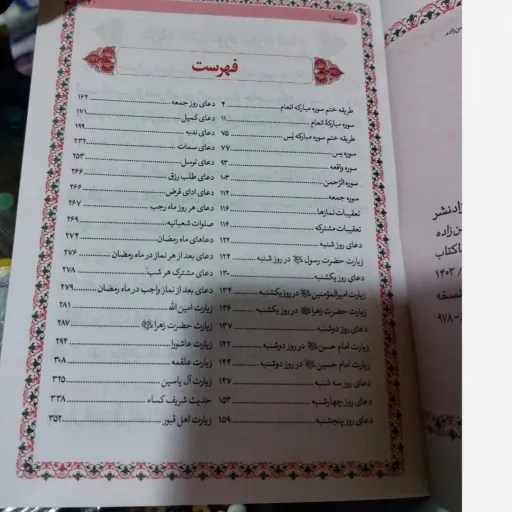 فهرست
فهرست
طریقه ختم سوره مبارکه انعام ۴
سوره مبارکهٔ انعام ۱۱
طریقه ختم سوره مبارکه یس ۷۵
سوره یس ۷۷
سوره واقعه ۹۳
سوره الرّحمن ۱۰۳
سوره جمعه ۱۱۲
تعقیبات نمازها ۱۱۶
تعقیبات مشترکه ۱۱۶
دعای روز شنبه ۱۲۲
زیارت حضرت رسول ﷺ در روز شنبه ۱۲۴
دعای روز یکشنبه ۱۳۰
زیارت امیرالمؤمنین در روز یکشنبه ۱۳۴
زیارت حضرت زهرا در روز یکشنبه ۱۳۶
دعای روز دوشنبه ۱۳۷
زیارت امام حسن در روز دوشنبه ۱۴۲
زیارت امام حسین در روز دوشنبه ۱۴۴
دعای روز سه شنبه ۱۴۷
دعای روز چهارشنبه ۱۵۳
دعای روز پنجشنبه ۱۵۹
دعای روز جمعه ۱۶۴
دعای کمیل ۱۷۱
دعای ندبه ۱۹۹
دعای سمات ۲۳۲
دعای توسل ۲۵۳
دعای طلب رزق ۲۶۶
دعای ادای قرض ۲۶۶
دعای هر روز ماه رجب ۲۶۷
صلوات شعبانیه ۲۶۹
دعاهای ماه رمضان ۲۷۴
دعای بعد از هر نماز در ماه رمضان ۲۷۶
دعای مشترک هر شب ۲۷۸
دعای بعد از نماز واجب در ماه رمضان ۲۷۹
زیارت امین الله ۲۸۱
زیارت حضرت زهرا ۲۸۷
زیارت عاشورا ۲۹۴
زیارت علقمه ۳۰۸
زیارت آل یاسین ۳۲۵
حدیث شریف کساء ۳۳۸
زیارت اهل قبور ۳۵۲
زاده
نشر
زاده
کتاب
۱۴۰۳ /
نسخه
۹۷۸-